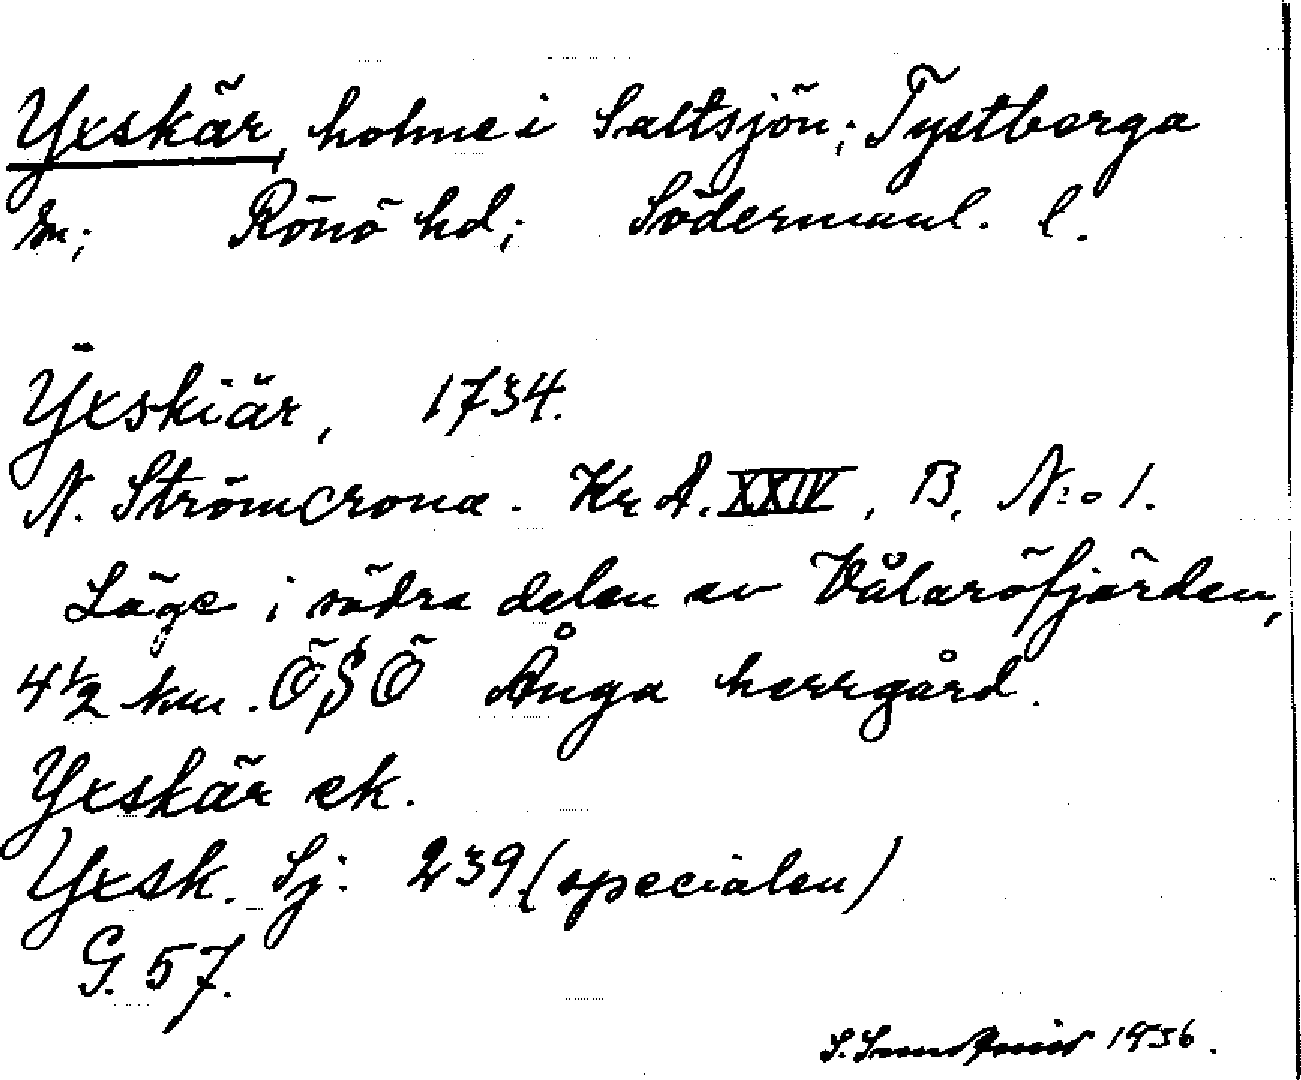 Yxskär, holme i Saltsjön; Tystberga
sn; Rönö hd; Södermanl. l.
Ÿxskiär, 1734.
N. Strömcrona. Kr A. XXIV, B, N:o 1.
Läge i södra delen av Vålaröfjärden,
4 1/2 km. ÖSÖ Ånga herrgård.
Yxskär ek.
Yxsk. Sj: 239 (specialen)
G. 57.
S. 1936.